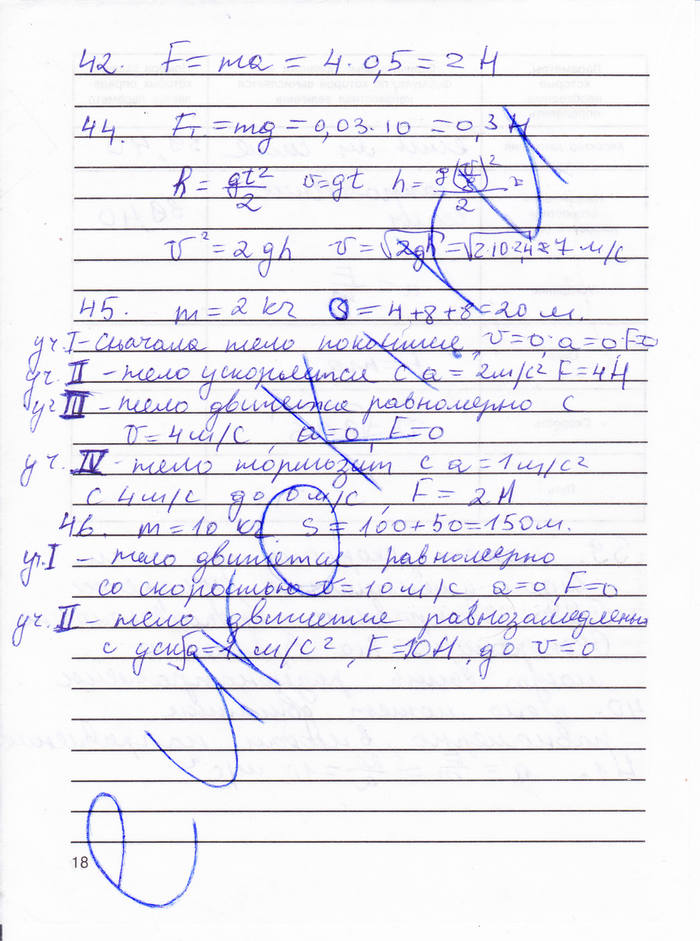 42. F = ma = 4 · 0,5 = 2 Н
44. Fт = mg = 0,03 · 10 = 0,3 Н
h = gt²/2 v = gt h = g(v/g)²/2 =
v² = 2gh v = √2gh = √2·10·2,4 ≈ 7 м/с
45. m = 2 кг S = 4+8+8 = 20 м.
уч. I – Сначала тело покоится, v = 0, a = 0, F = 0
уч. II – тело ускоряется с a = 2 м/с² F = 4 Н
уч III – тело движется равномерно с
v = 4 м/с, a = 0, F = 0
уч. IV – тело тормозит с a = 1 м/с²
с 4 м/с до 0 м/с, F = 2 Н
46. m = 10 кг S = 100 + 50 = 150 м.
уч. I – тело движется равномерно
со скоростью v = 10 м/с a = 0, F = 0
уч. II – тело движется равнозамедленно
с уск. a = 1 м/с², F = 10 Н, до v = 0
18